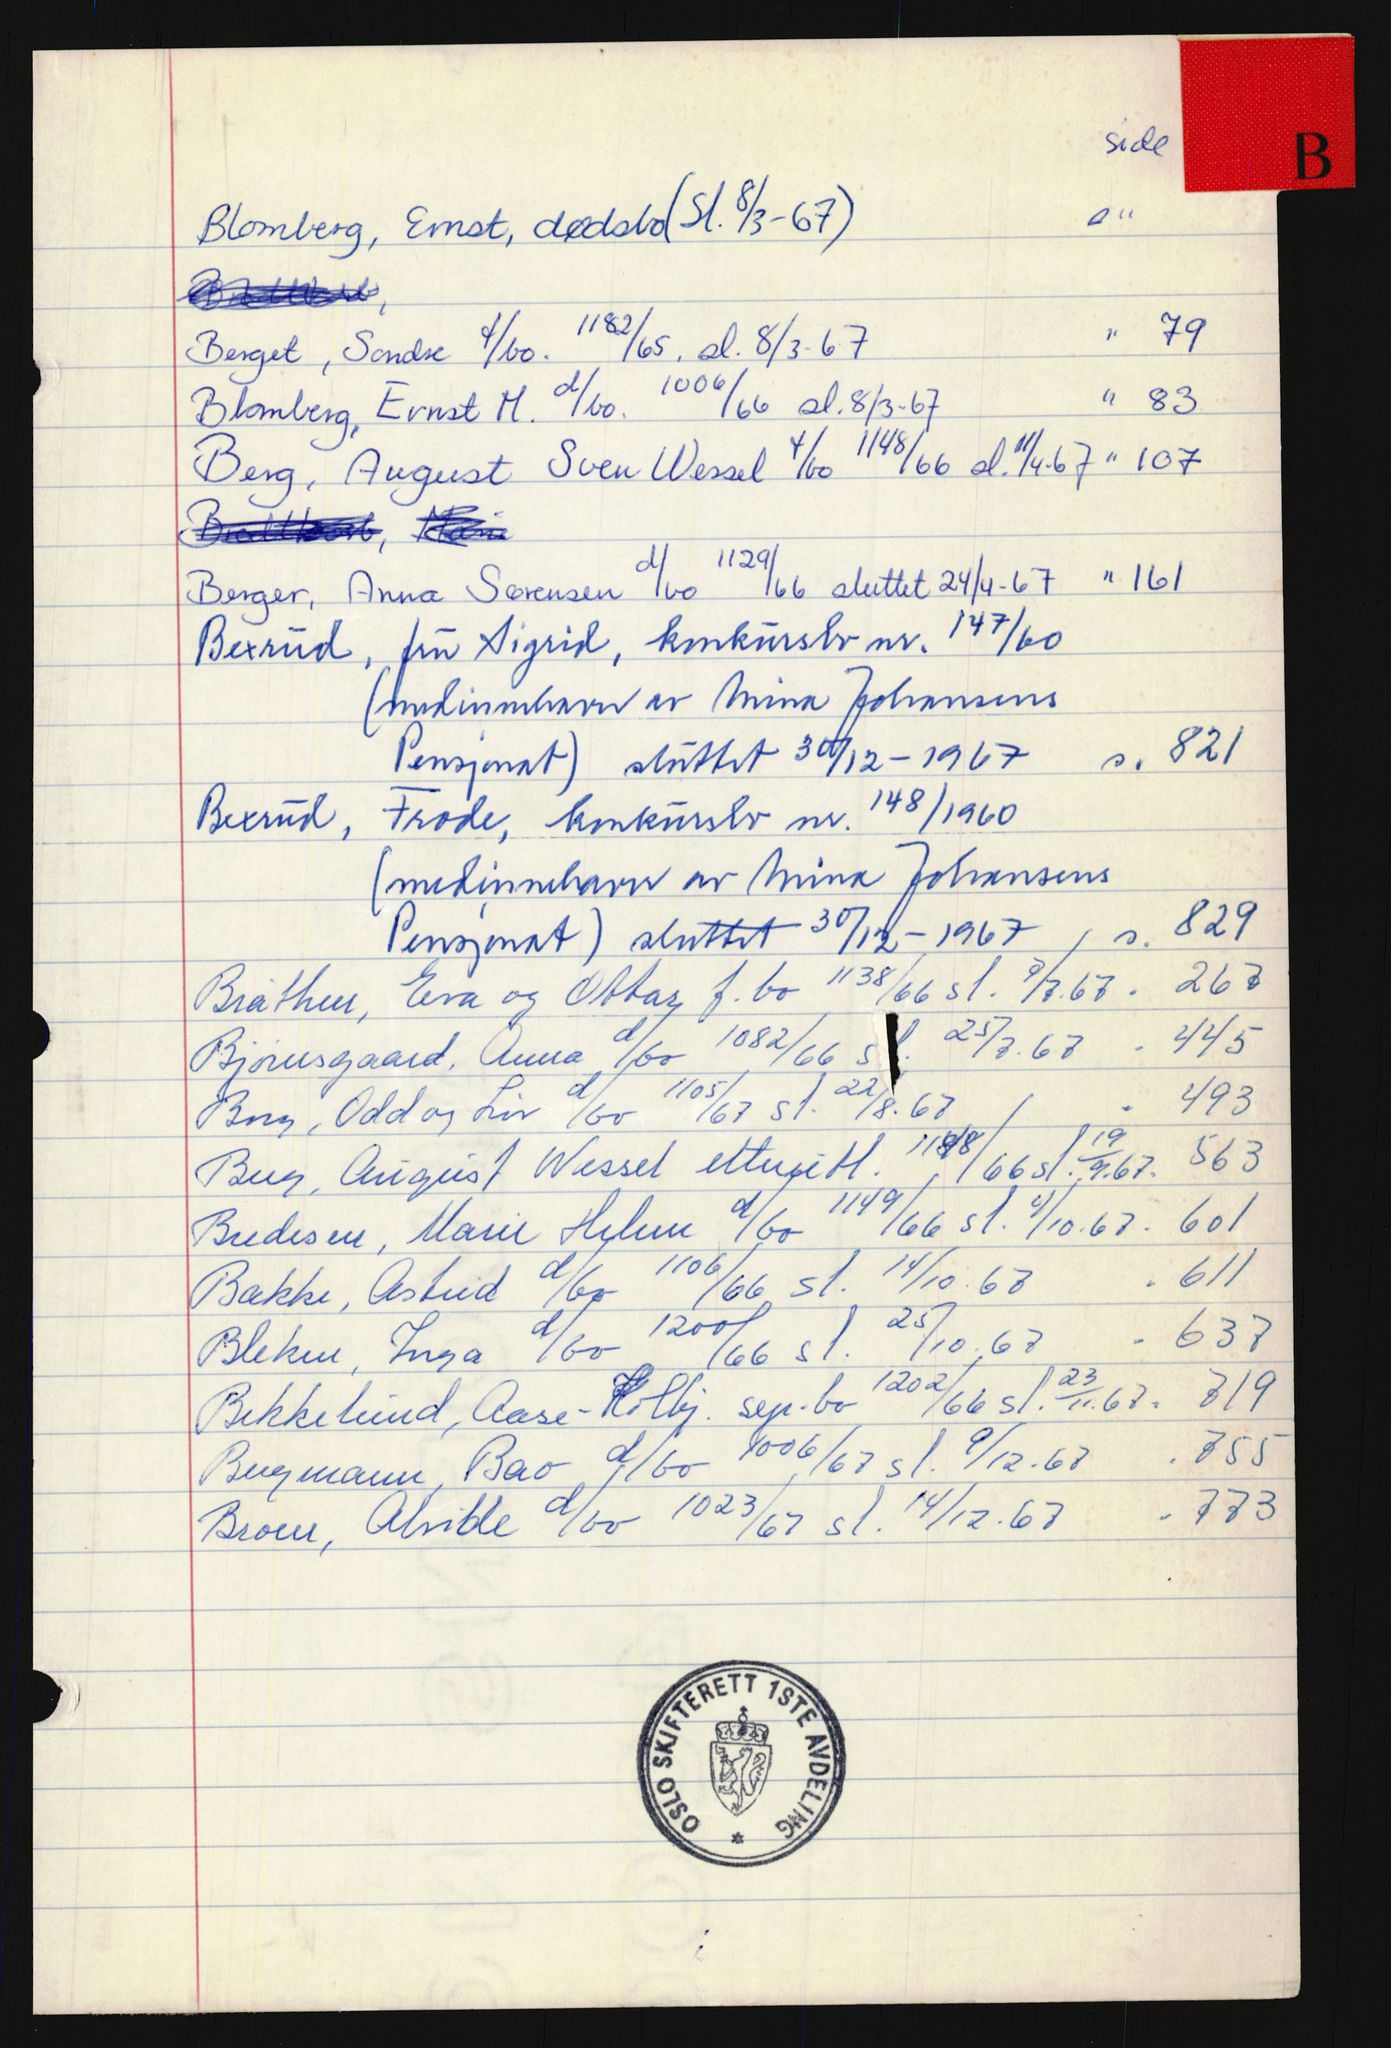 side
B
Blomberg, Ernst, dødsbo (Sl. 8/3-67) "
Berget, Sondre d/bo. 1182/65. sl. 8/3-67 " 79
Blomberg, Ernst M. d/bo. 1006/66 sl. 8/3-67 " 83
Berg, August Sven Wessel d/bo 1148/66 sl. 11/4-67 " 107
Berger, Anna Sørensen d/bo 1129/66 sluttet 24/4-67 " 161
Bexrud, fru Sigrid, konkursbo nr. 147/60
(medinnehaver av Mina Johansens
Pensjonat) sluttet 30/12-1967 s. 821
Bexrud, Frode, konkursbo nr. 148/1960
(medinnehaver av Mina Johansens
Pensjonat) sluttet 30/12-1967, s. 829
Bråthen, Eva og Ottar f. bo 1138/66 sl. 7.67 - 267
Bjørnsgaard, Anna d/bo 1082/66 sl. 25/7.67 - 445
Berg, Odd og Liv d/bo 1105/67 sl. 22/8.67 - 493
Berg, August Wessel 66 sl. 19/9.67 - 563
Bredesen, Marie Helene d/bo 1149/66 sl. 4/10.67 - 601
Bakke, Astrid d/bo 1106/66 sl. 14/10.67 - 611
Bleken, Inga d/bo 1200/66 sl. 25/10.67 - 637
Bekkelund, Aase-Kolbj. sep.bo 1202/66 sl. 23/11.67 - 719
Bergmann, Bao d/bo 1006/67 sl. 9/12.67 - 755
Broen, Alvilde d/bo 1023/67 sl. 14/12.67 - 773
OSLO SKIFTERETT 1STE AVDELING *